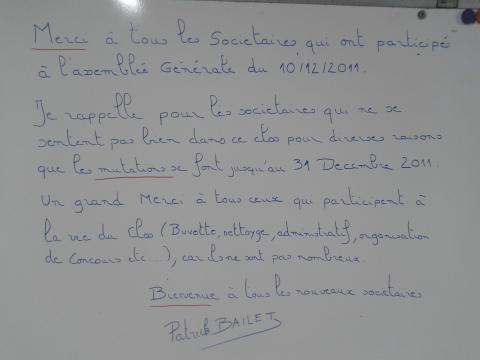 Merci à tous les Societaires qui ont participé
à l'assemblée Générale du 10/12/2011.
Je rappelle pour les societaires qui ne se
sentent pas bien dans ce clos pour diverses raisons
que les mutations se font jusqu'au 31 Decembre 2011.
Un grand Merci à tous ceux qui participent à
la vie du Clos (Buvette, nettoyge, administratif, organisation
de Concours etc ...), car ils ne sont pas nombreux.
Bienvenue à tous les nouveaux societaires
Patrick BAILET